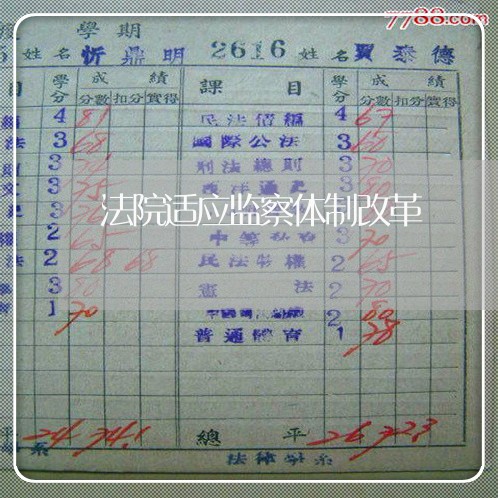 7788.com
度 學期
5 姓名 忻鼎明 2616 姓名 賈泰德
目 學分 成績 課目 學分 成績
分數 扣分 實得 分數 扣分 實得
編 4 81 民法債編 4 67
法 3 68 國際公法 3 60
則 3 刑法總則 3 70
文 3 75 西洋通史 3 80
史 3 3
法院适应监察体制改革
權 2 65 3 70
法 2 68 68 民法物權 2 65
3 80 憲法 2 70
育 1 70 2 80
普通體育 1 78
平 24 74.1 總平 26 72.3
學系 法律學系